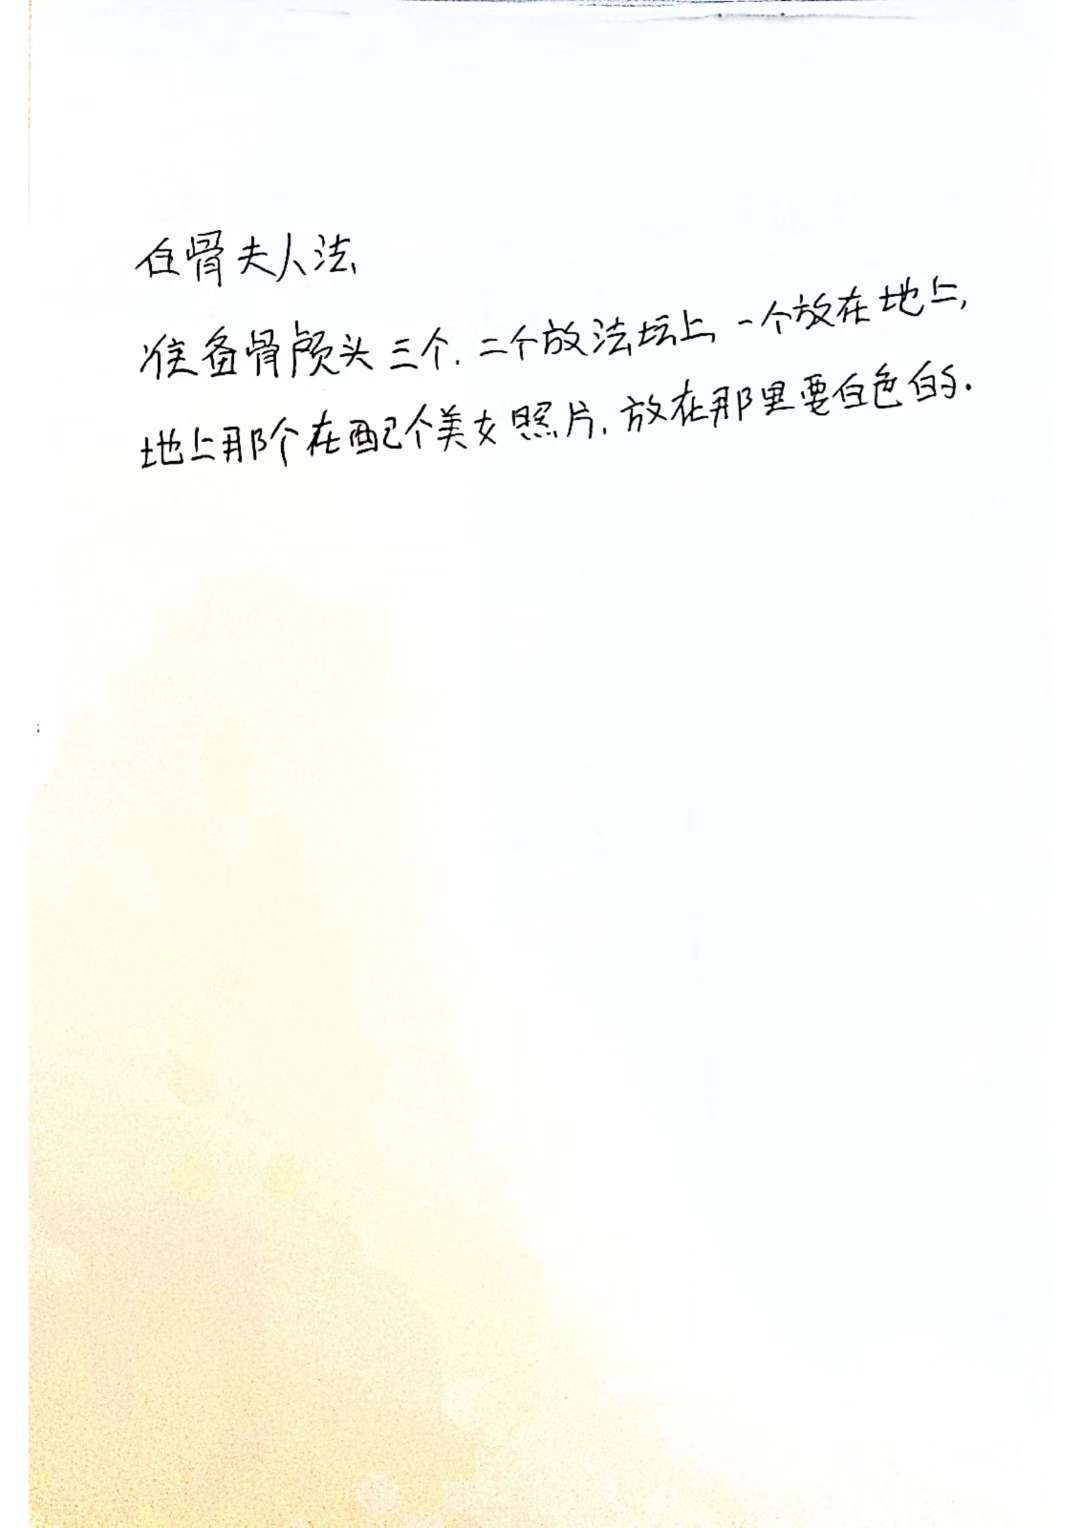 白骨夫人法
准备骨颅头三个.二个放法坛上,一个放在地上,
地上那个在配个美女照片.放在那里要白色的.